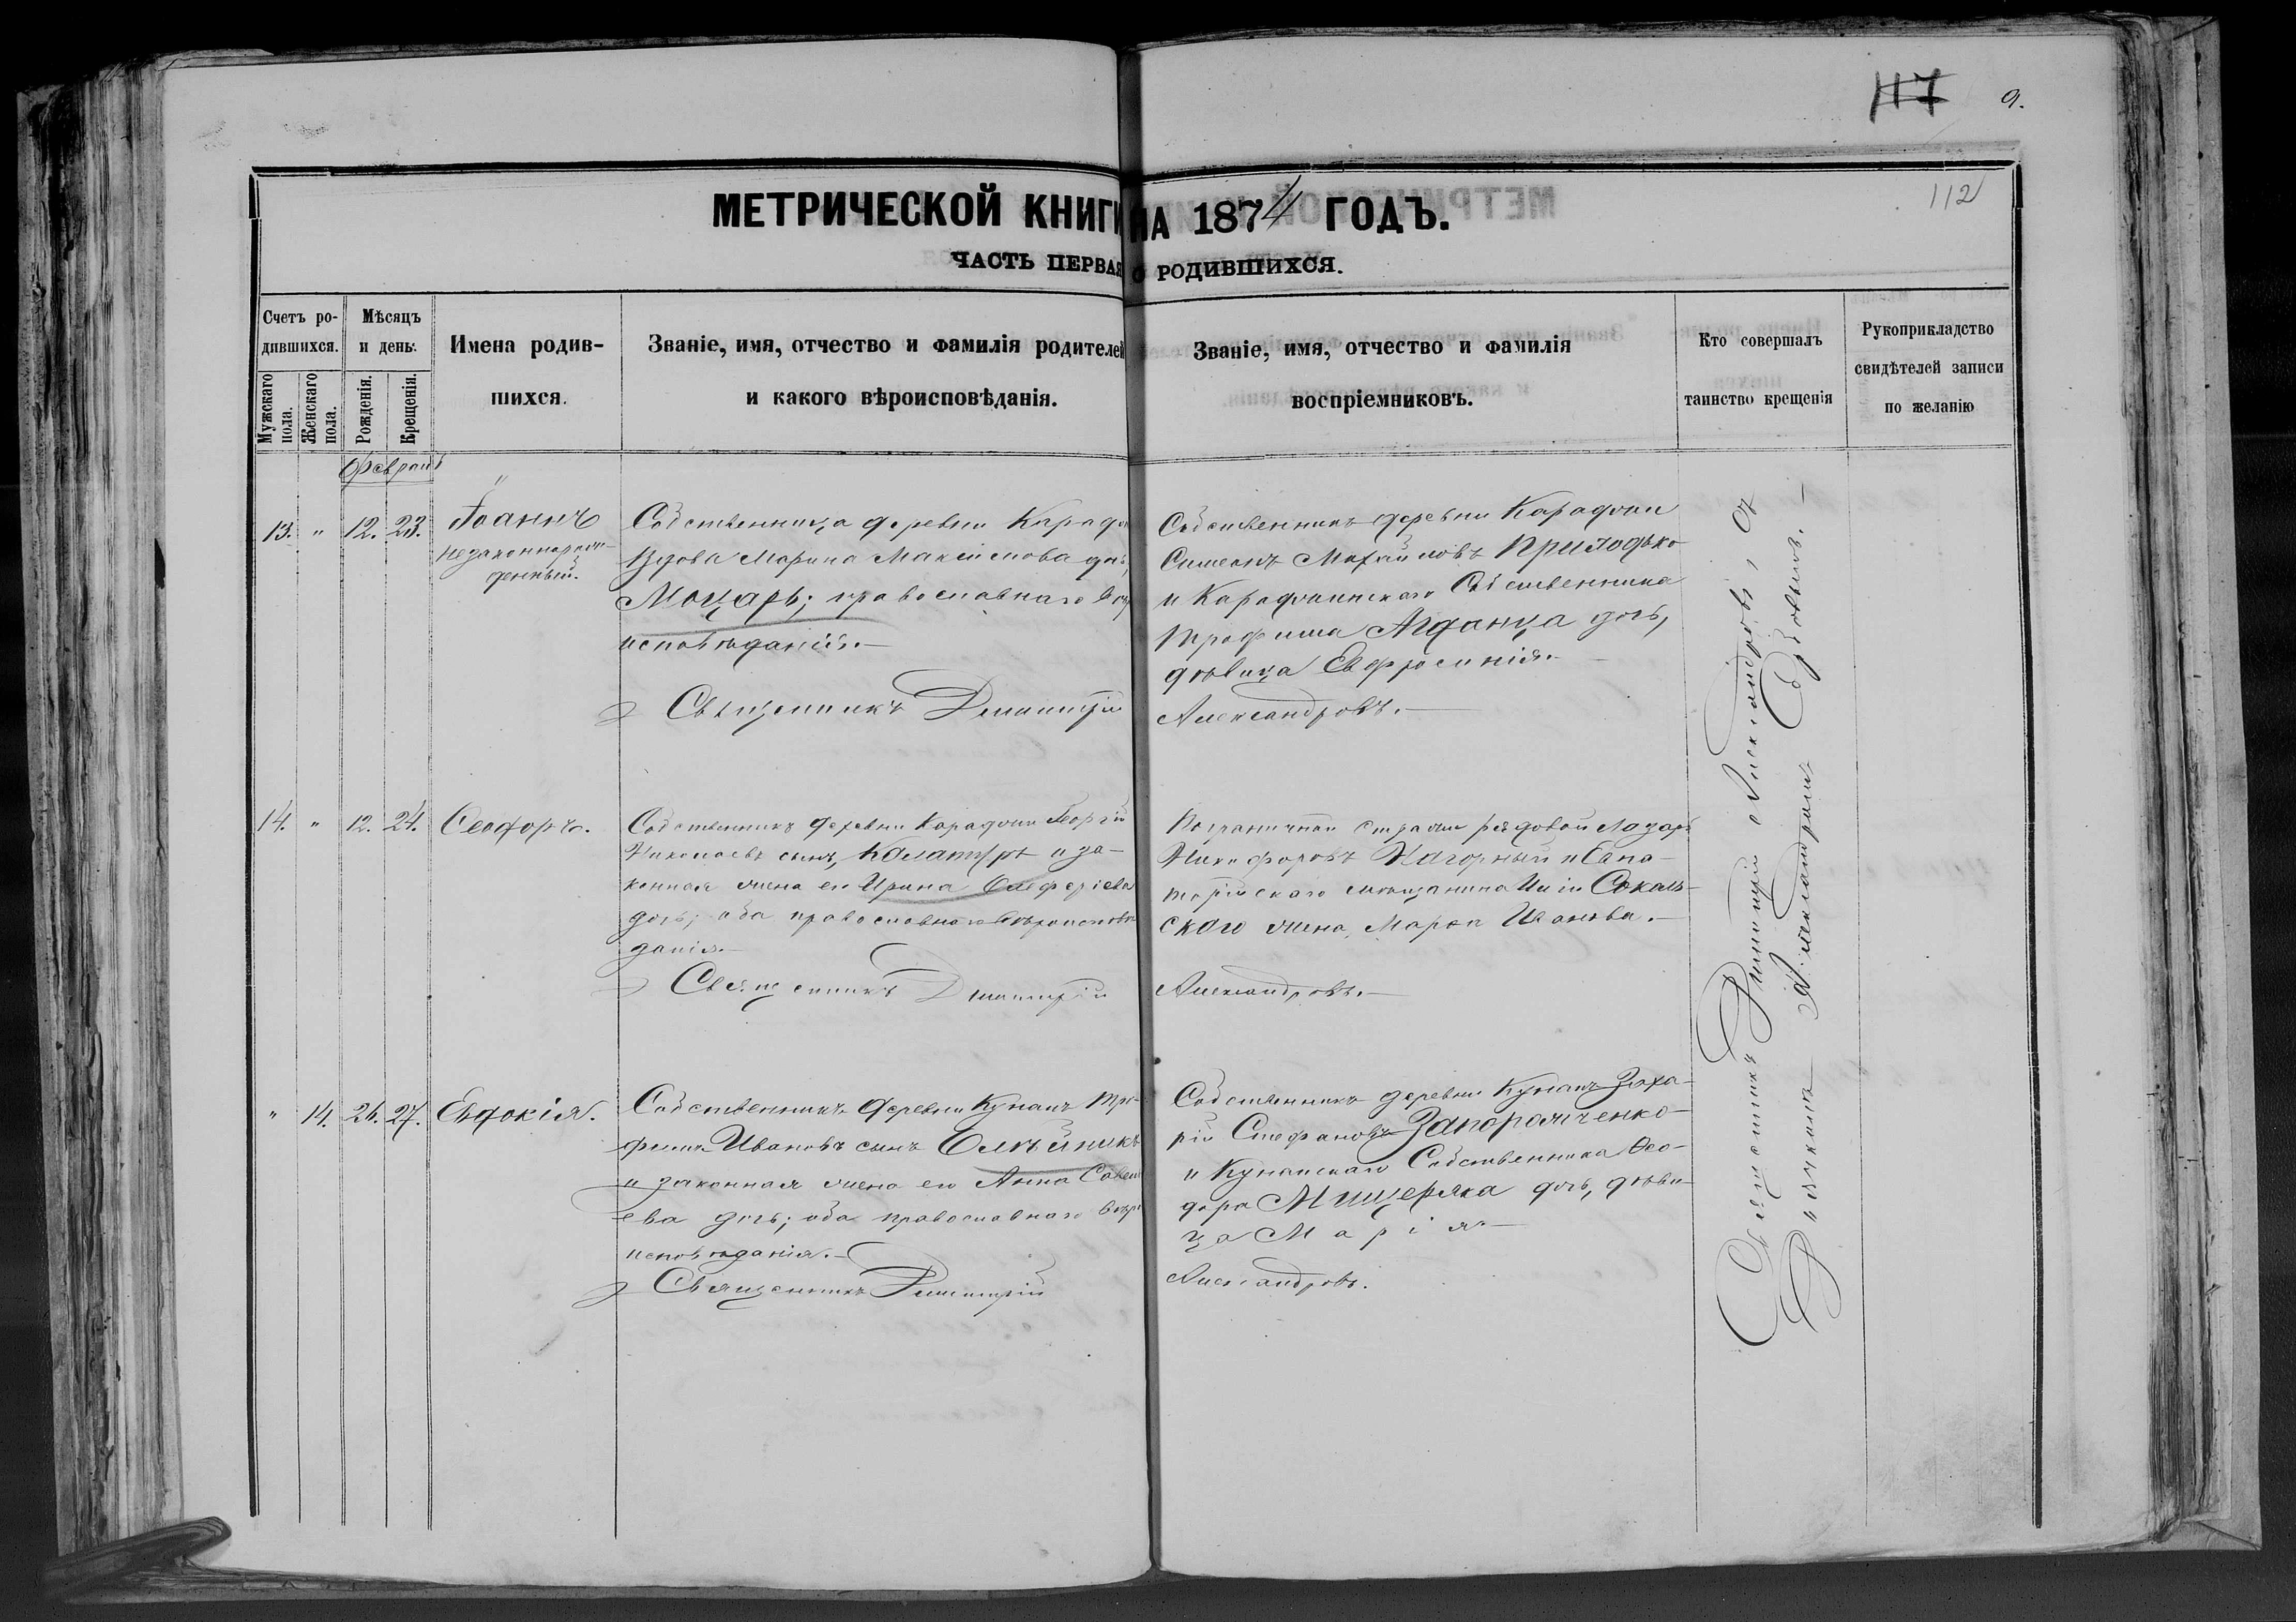 117 9.
112
МЕТРИЧЕСКОЙ КНИГИ НА 1874 ГОДЪ.
ЧАСТЬ ПЕРВАЯ О РОДИВШИХСЯ.
Счетъ ро-
дившихся.
Мужскаго
пола.
Женскаго
пола.
Мѣсяцъ
и день.
Рожденія.
Крещенія.
Имена родив-
шихся.
Званіе, имя, отчество и фамилія родителей
и какого вѣроисповѣданія.
Званіе, имя, отчество и фамилія
воспріемниковъ.
Кто совершалъ
таинство крещенія
Рукоприкладство
свидѣтелей записи
по желанію
Февраль
13. " 12. 23.
Іоаннъ
незаконнорож-
денный.
Собственница деревни
Вдова Марина Максимова дочь,
Моцарь; православнаго вѣро
исповѣданія.
Священникъ Димитрій
Собственникъ деревни
Симеонъ Михайловъ Приходько
и Собственника
Трофима дочь,
дѣвица Евфросинія.
Александровъ.
14. " 12. 24.
Ѳеодоръ.
Собственникъ деревни Георгій
Николаевъ сынъ, и за-
конная жена его Ирина
дочь; оба православнаго вѣроисповѣ
данія.
Священникъ Димитрій
Пограничной стражи рядовой Лазарь
Никифоровъ Нагорный и Евпа-
торійскаго мѣщанина Иліи Сокаль-
скаго жена, Марѳа Иванова.
Александровъ.
" 14. 26. 27.
Евдокія.
Собственникъ деревни Кунанъ Тро-
фимъ Ивановъ сынъ Олѣйникъ
и законная жена его Анна Савель
ева дочь; оба православнаго вѣро
исповѣданія.
Священникъ Димитрій
Собственникъ деревни Кунанъ Заха-
рій Стефановъ Запорожченко
и Кунанскаго Собственника Ѳео-
дора Мищеряка дочь, дѣви-
ца Марія.
Александровъ.
Священникъ Димитрій Александровъ, съ
Дьячкомъ Александромъ